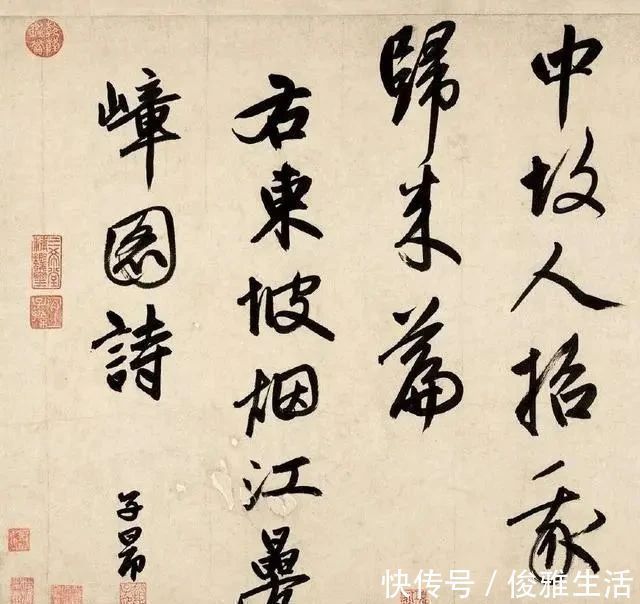 中故人招我
歸来篇
右東坡烟江疊
嶂圖詩
子昂
快传号 / 俊雅生活